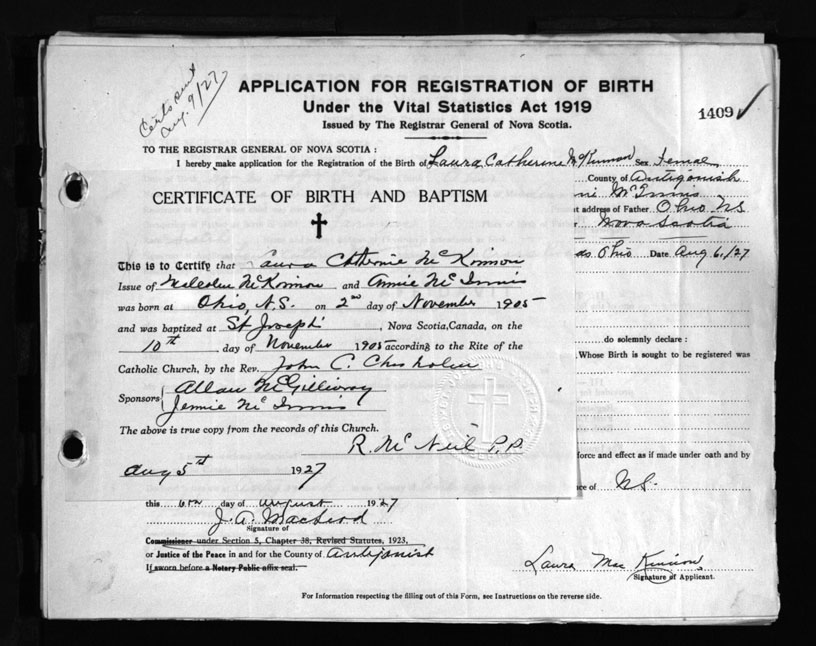 Certs sent
Aug. 9/27
APPLICATION FOR REGISTRATION OF BIRTH
Under the Vital Statistics Act 1919
Issued by The Registrar General of Nova Scotia.
1409 ✓
TO THE REGISTRAR GENERAL OF NOVA SCOTIA :
I hereby make application for the Registration of the Birth of Laura Catherine McKinnon Sex Female
County of Antigonish
nie McInnis
t address of Father Ohio NS
Nova Scotia
Ohio Date Aug 6/27
do solemnly declare :
Whose Birth is sought to be registered was
CERTIFICATE OF BIRTH AND BAPTISM
✝
This is to Certify that Laura Catherine McKinnon
Issue of Malcolm McKinnon and Annie McInnis
was born at Ohio, N.S. on 2nd day of November 1905
and was baptized at St Joseph's, Nova Scotia, Canada, on the
10th day of November 1905 according to the Rite of the
Catholic Church, by the Rev. John C. Chisholm
Sponsors { Allan McGillivray
Jennie McInnis
The above is true copy from the records of this Church.
R. McNeil P.P.
Aug 5th 1927
force and effect as if made under oath and by
ce of N.S.
this 6th day of August 1927
J. A. MacLeod
Signature of
Commissioner under Section 5, Chapter 38, Revised Statutes, 1923,
or Justice of the Peace in and for the County of Antigonish
If sworn before a Notary Public affix seal.
Laura MacKinnon
Signature of Applicant.
For Information respecting the filling out of this Form, see Instructions on the reverse side.